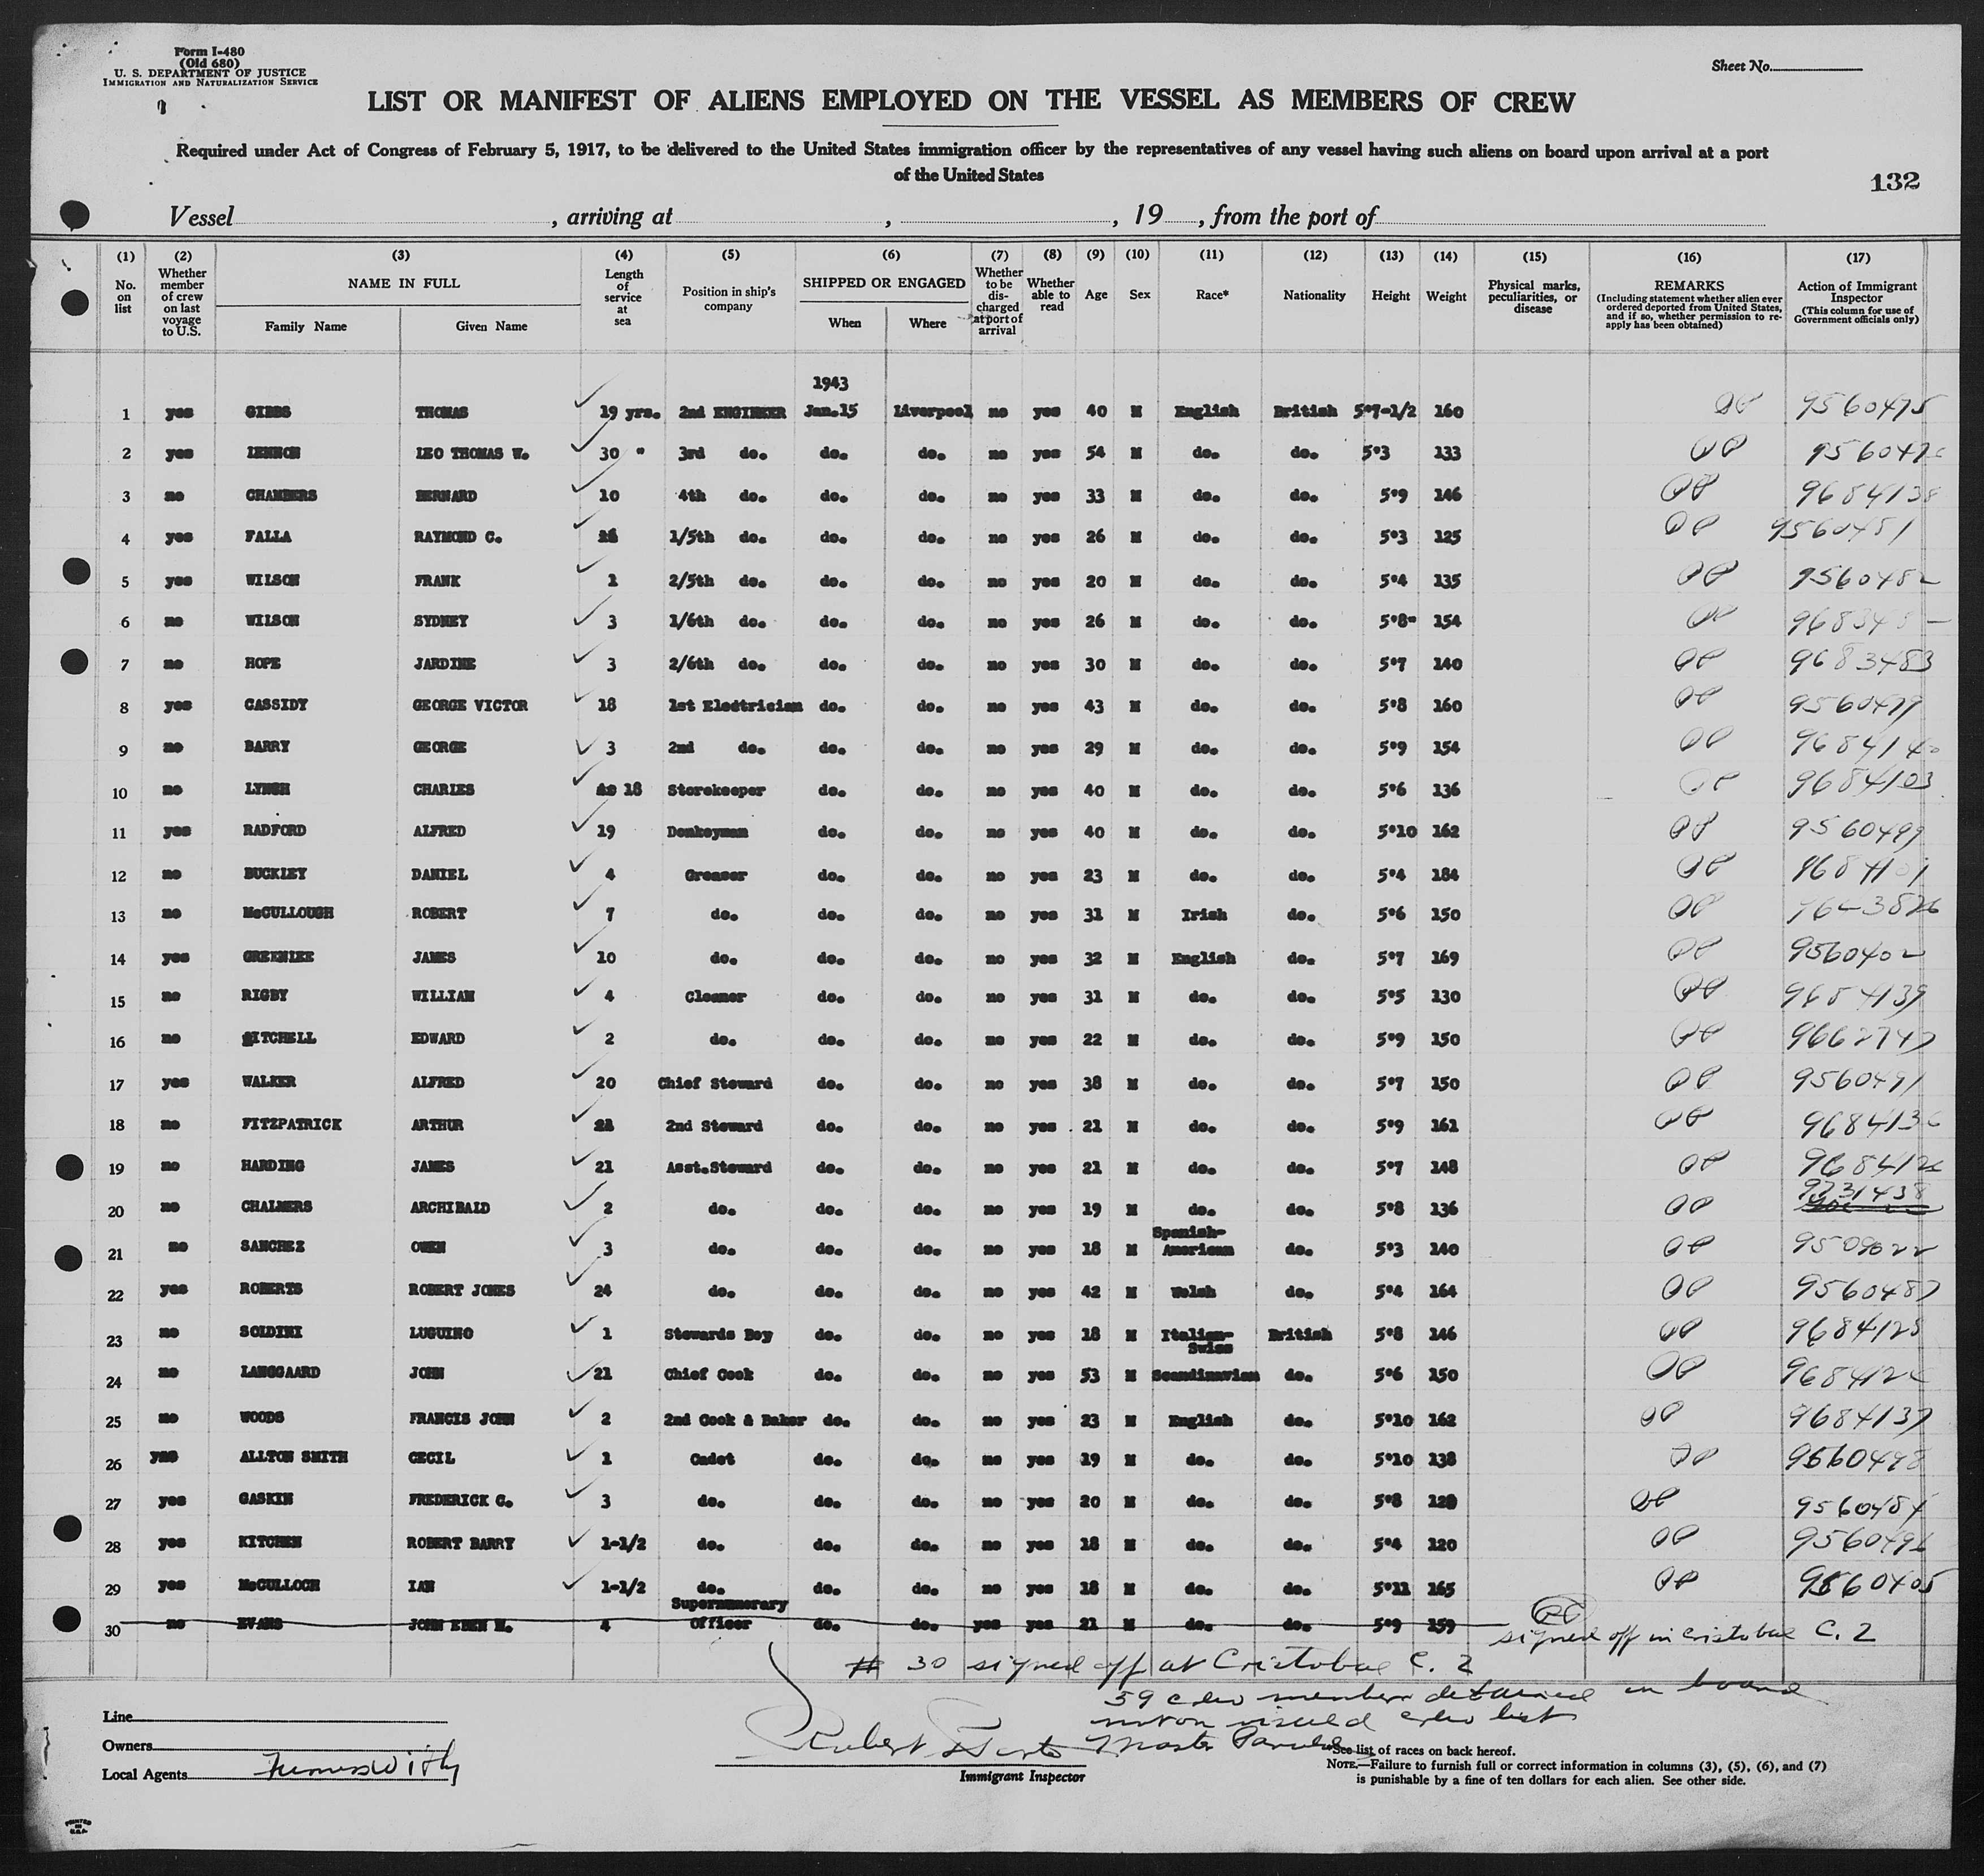 Form I-480
(Old 680)
U. S. DEPARTMENT OF JUSTICE
IMMIGRATION AND NATURALIZATION SERVICE
Sheet No.
LIST OR MANIFEST OF ALIENS EMPLOYED ON THE VESSEL AS MEMBERS OF CREW
Required under Act of Congress of February 5, 1917, to be delivered to the United States immigration officer by the representatives of any vessel having such aliens on board upon arrival at a port
of the United States
132
Vessel , arriving at , , 19 , from the port of
(1) (2) (3) (4) (5) (6) (7) (8) (9) (10) (11) (12) (13) (14) (15) (16) (17)
No. on list
Whether member of crew on last voyage to U.S.
NAME IN FULL
Family Name Given Name
Length of service at sea
Position in ship's company
SHIPPED OR ENGAGED
When Where
Whether to be discharged at port of arrival
Whether able to read
Age
Sex
Race*
Nationality
Height
Weight
Physical marks, peculiarities, or disease
REMARKS
(Including statement whether alien ever ordered deported from United States, and if so, whether permission to re-apply has been obtained)
Action of Immigrant Inspector
(This column for use of Government officials only)
1943
1 yes GIBBS THOMAS 19 yrs. 2nd ENGINEER Jan.15 Liverpool no yes 40 M English British 5'7-1/2 160 9560475
2 yes LENNON LEO THOMAS W. 30 " 3rd do. do. do. no yes 54 M do. do. 5'3 133
3 no CHAMBERS BERNARD 10 4th do. do. do. no yes 33 M do. do. 5'9 146 9684138
4 yes FALLA RAYMOND C. 1/5th do. do. do. no yes 26 M do. do. 5'3 125 9560481
5 yes WILSON FRANK 1 2/5th do. do. do. no yes 20 M do. do. 5'4 135 9560482
6 no WILSON SYDNEY 3 1/6th do. do. do. no yes 26 M do. do. 5'8" 154
7 no HOPE JARDINE 3 2/6th do. do. do. no yes 30 M do. do. 5'7 140 9683483
8 yes CASSIDY GEORGE VICTOR 18 1st Electrician do. do. no yes 43 M do. do. 5'8 160 9560479
9 no BARRY GEORGE 3 2nd do. do. do. no yes 29 M do. do. 5'9 154 9684140
10 no LYNCH CHARLES 18 Storekeeper do. do. no yes 40 M do. do. 5'6 136 9684103
11 yes RADFORD ALFRED 19 Donkeyman do. do. no yes 40 M do. do. 5'10 162 9560499
12 no BUCKLEY DANIEL 4 Greaser do. do. no yes 23 M do. do. 5'4 184 9684101
13 no McCULLOUGH ROBERT 7 do. do. do. no yes 31 M Irish do. 5'6 150
14 yes GREENLEE JAMES 10 do. do. do. no yes 32 M English do. 5'7 169 9560402
15 no RIGBY WILLIAM 4 Cleaner do. do. no yes 31 M do. do. 5'5 130 9684139
16 no MITCHELL EDWARD 2 do. do. do. no yes 22 M do. do. 5'9 150 9662747
17 yes WALKER ALFRED 20 Chief Steward do. do. no yes 38 M do. do. 5'7 150 9560491
18 no FITZPATRICK ARTHUR 2nd Steward do. do. no yes 21 M do. do. 5'9 161 9684136
19 no HARDING JAMES 21 Asst.Steward do. do. no yes 21 M do. do. 5'7 148 9684126
20 no CHALMERS ARCHIBALD 2 do. do. do. no yes 19 M do. do. 5'8 136 9731438
21 no SANCHEZ OWEN 3 do. do. do. no yes 18 M Spanish-American do. 5'3 140 9509022
22 yes ROBERTS ROBERT JONES 24 do. do. do. no yes 42 M Welsh do. 5'4 164 9560487
23 no SOLDINI LUGUINO 1 Stewards Boy do. do. no yes 18 M Italian-Swiss British 5'8 146 9684125
24 no LANGGAARD JOHN 21 Chief Cook do. do. no yes 53 M Scandinavian do. 5'6 150
25 no WOODS FRANCIS JOHN 2 2nd Cook & Baker do. do. no yes 23 M English do. 5'10 162 9684137
26 yes ALLTON SMITH CECIL 1 Cadet do. do. no yes 19 M do. do. 5'10 138 9560498
27 yes GASKIN FREDERICK C. 3 do. do. do. no yes 20 M do. do. 5'8 128 9560484
28 yes KITCHEN ROBERT BARRY 1-1/2 do. do. do. no yes 18 M do. do. 5'4 120 9560496
29 yes McCULLOCH IAN 1-1/2 do. do. do. no yes 18 M do. do. 5'11 165 9560405
30 no EVANS JOHN EBEN H. 4 Supernumerary Officer do. do. yes yes 21 M do. do. 5'9 159 signed off in Cristobal C. Z
# 30 signed off at Cristobal C. Z
59 crew members detained on board
not on visaed crew list
Line
Owners
Local Agents Furness Withy
Robert
Master
Immigrant Inspector
*See list of races on back hereof.
NOTE.—Failure to furnish full or correct information in columns (3), (5), (6), and (7)
is punishable by a fine of ten dollars for each alien. See other side.
PRINTED IN U.S.A.